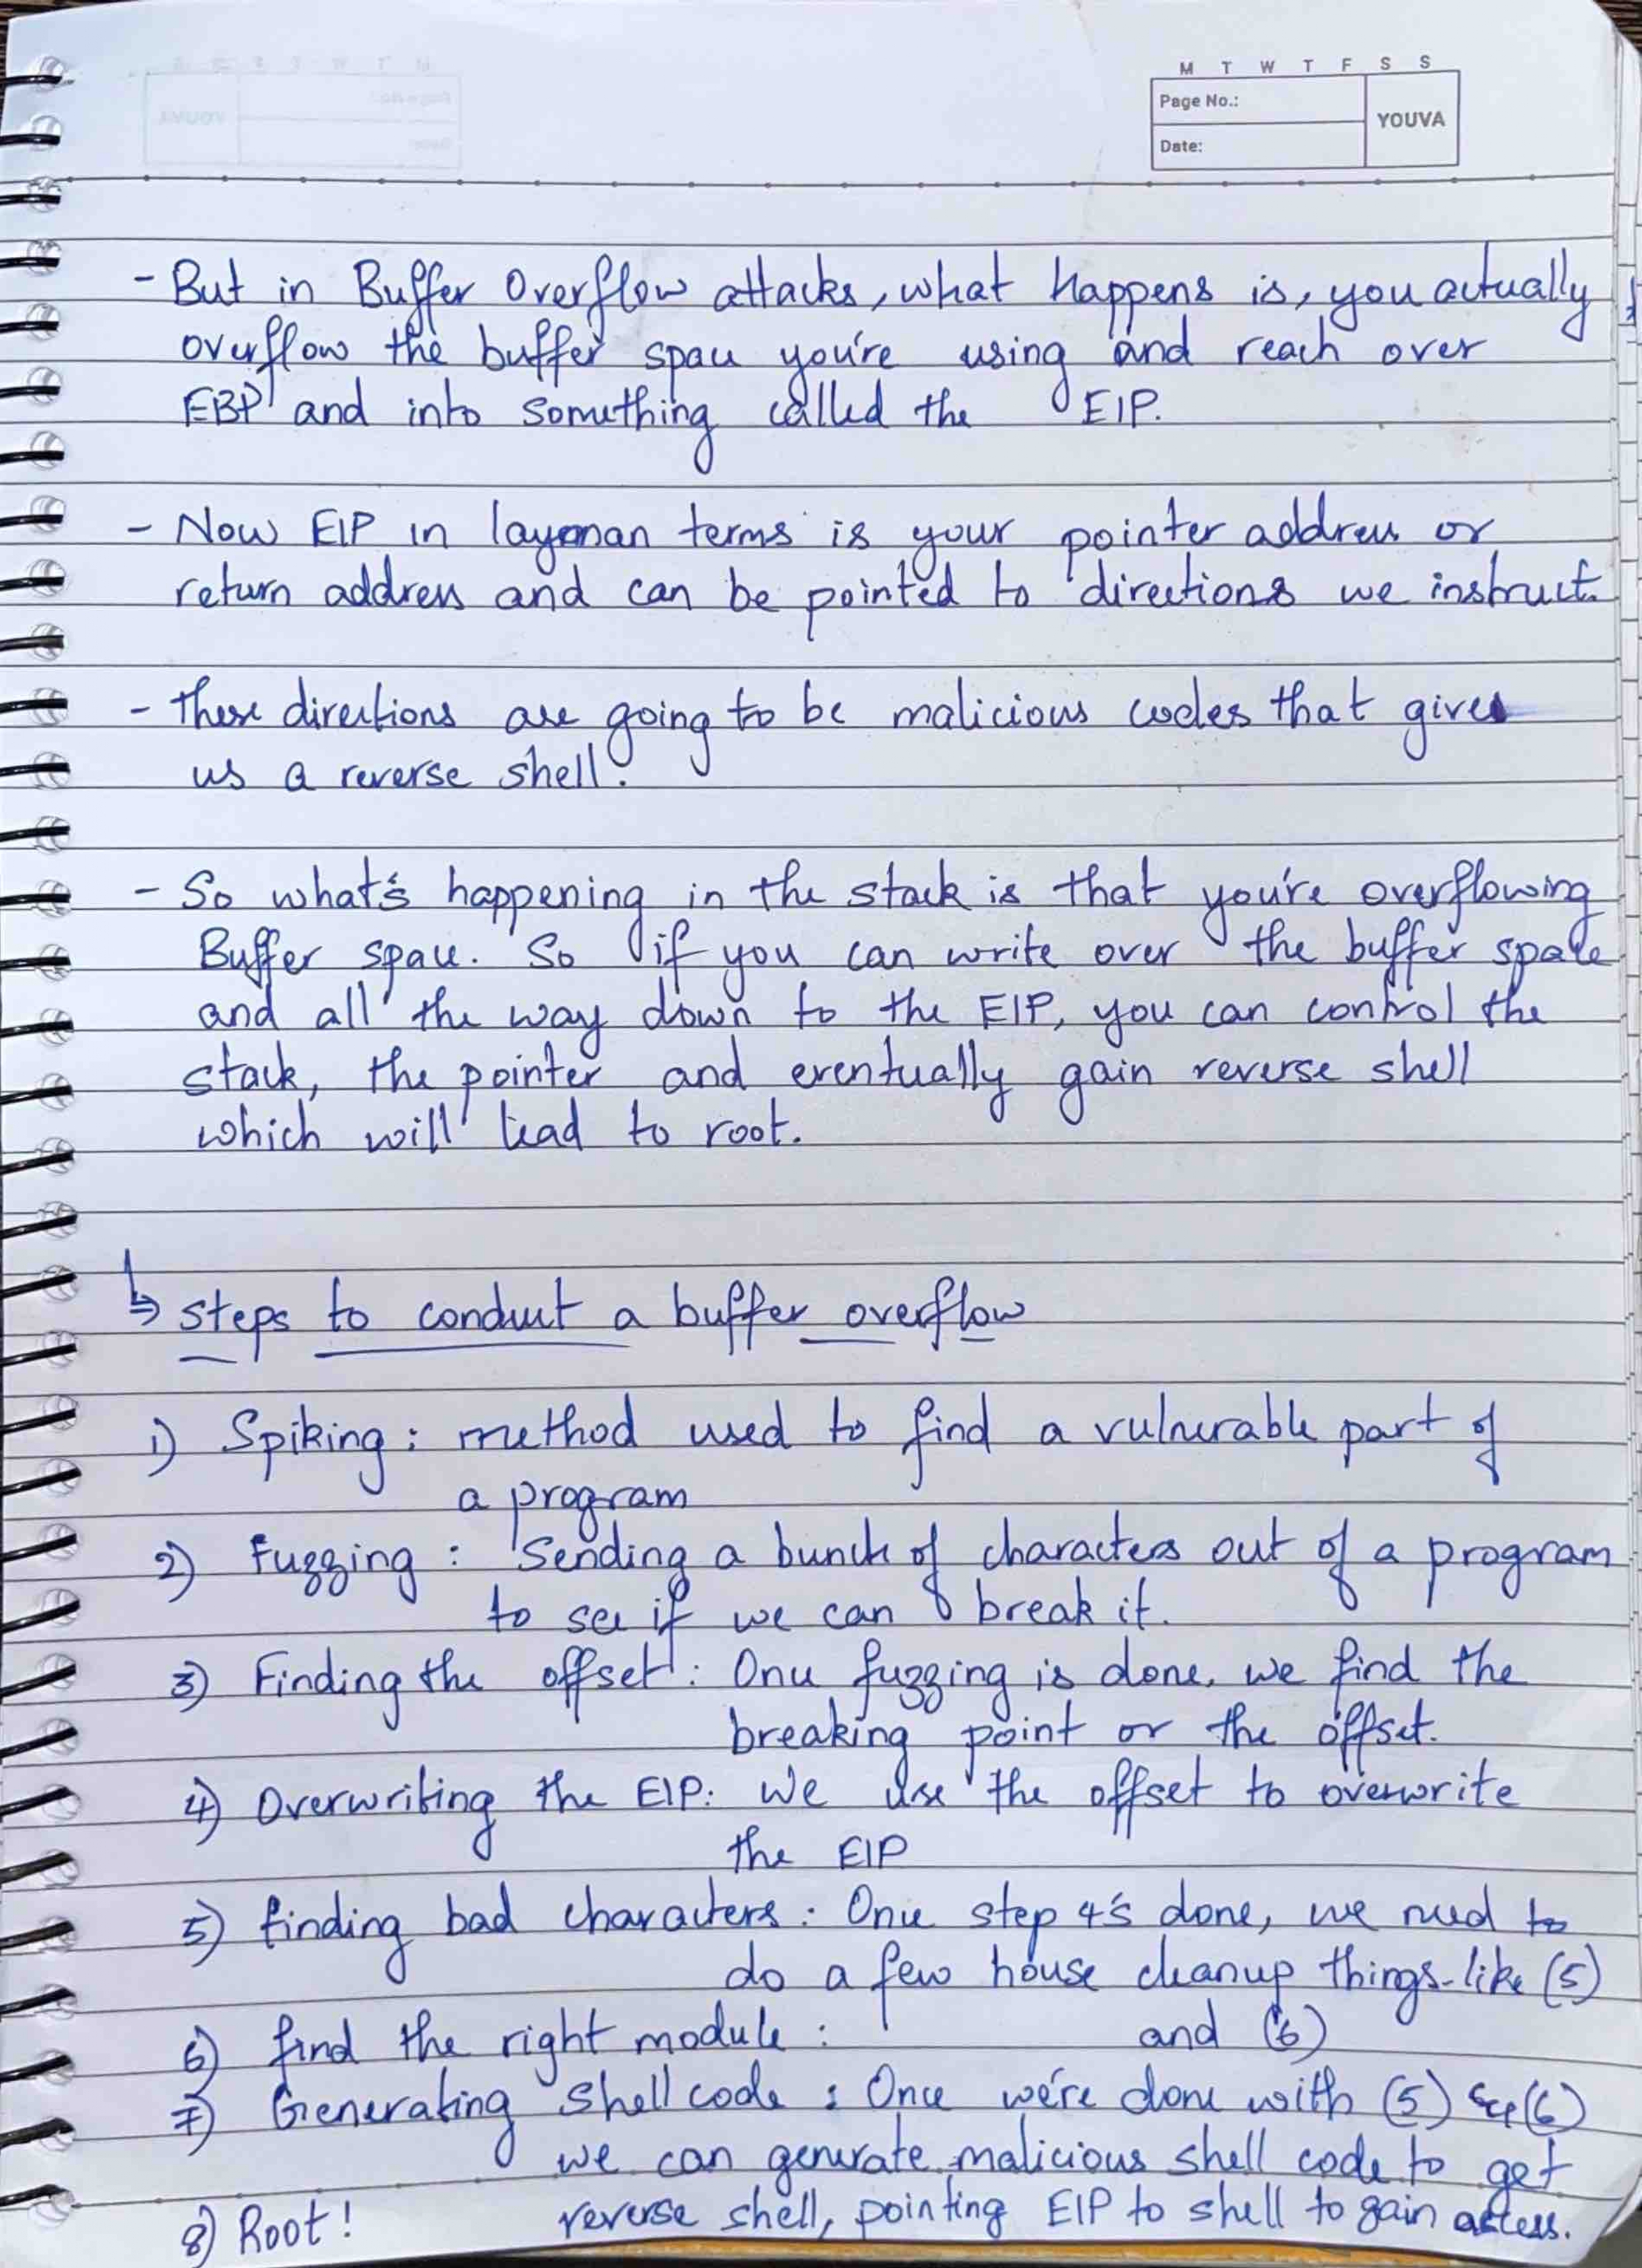 M T W T F S S
Page No.:
YOUVA
Date:
- But in Buffer Overflow attacks, what happens is, you actually
overflow the buffer space you're using and reach over
EBP and into something called the EIP.
- Now EIP in layman terms is your pointer address or
return address and can be pointed to directions we instruct.
- These directions are going to be malicious codes that gives
us a reverse shell.
- So what's happening in the stack is that you're overflowing
Buffer space. So if you can write over the buffer space
and all the way down to the EIP, you can control the
stack, the pointer and eventually gain reverse shell
which will lead to root.
↳ Steps to conduct a buffer overflow
1) Spiking: method used to find a vulnerable part of
a program
2) Fuzzing: Sending a bunch of characters out of a program
to see if we can break it.
3) Finding the offset: Once fuzzing is done, we find the
breaking point or the offset.
4) Overwriting the EIP: We use the offset to overwrite
the EIP
5) finding bad characters: Once step 4's done, we need to
do a few house cleanup things-like (5)
6) find the right module: and (6)
7) Generating shell code: Once we're done with (5) & (6)
we can generate malicious shell code to get
8) Root! reverse shell, pointing EIP to shell to gain access.